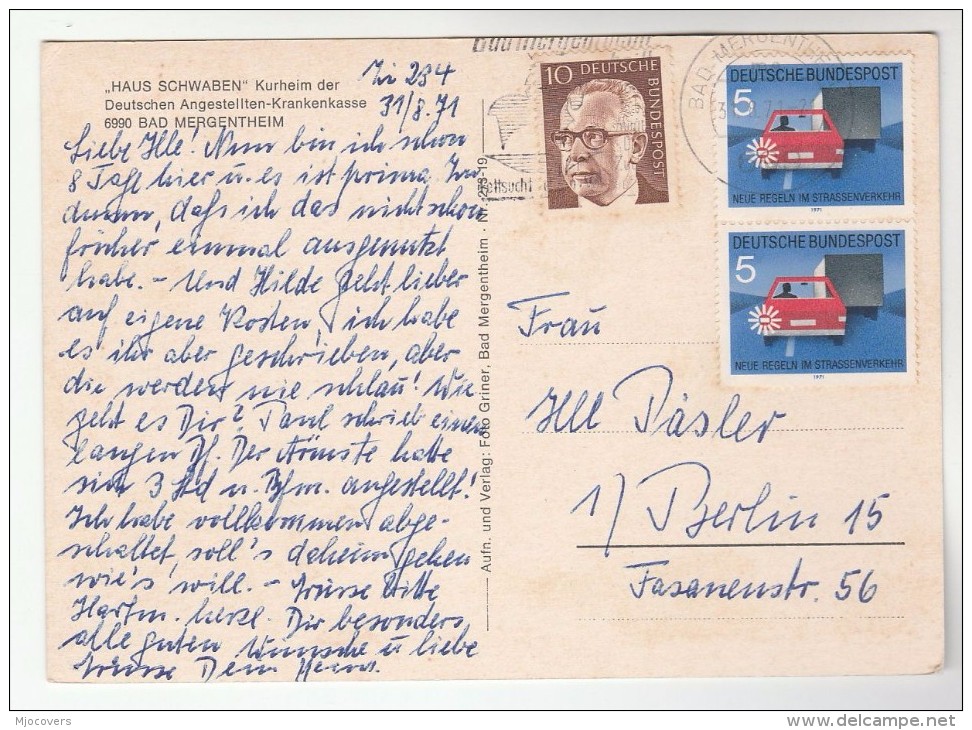 „HAUS SCHWABEN" Kurheim der
Deutschen Angestellten-Krankenkasse
6990 BAD MERGENTHEIM
Zi 234
31/8.71
Liebe Ille! Nun bin ich schon
8 Tage hier u. es ist prima.
dumm, daß ich das nicht schon
früher einmal ausgenutzt
habe. - Und Hilde geht lieber
auf eigene Kosten, ich habe
es ihr aber geschrieben, aber
die werden nie schlau! Wie
geht es Dir? Paul schrieb einen
langen Bf. Der Ärmste hatte
sich 3 Std n. Bfm. angestellt!
Ich habe vollkommen abge-
schaltet, soll's daheim gehen
wie's will. - Grüsse bitte
Hartm. herzl. Dir besonders
alle guten Wünsche u liebe
Grüsse Dein
Aufn. und Verlag: Foto Griner, Bad Mergentheim · Nr. 273-19
Bad Mergentheim
Fettsucht
BAD MERGENTHE
10 DEUTSCHE
BUNDESPOST
DEUTSCHE BUNDESPOST
5
NEUE REGELN IM STRASSENVERKEHR
1971
DEUTSCHE BUNDESPOST
5
NEUE REGELN IM STRASSENVERKEHR
1971
Frau
Ill Päsler
1/ Berlin 15
Fasanenstr. 56
Mjocovers